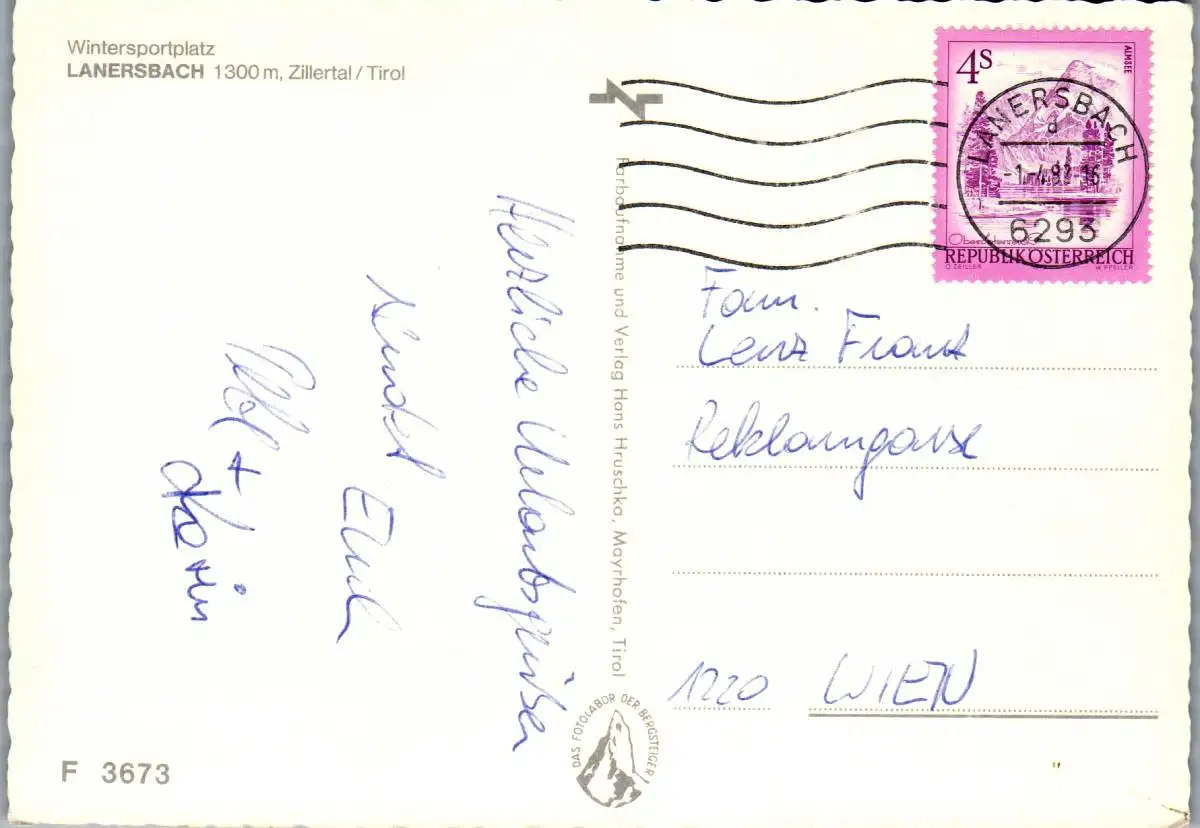 Wintersportplatz
LANERSBACH 1300 m, Zillertal / Tirol
Herzliche Urlaubsgrüße
sendet Euch
+
Karin
F 3673
Farbaufnahme und Verlag Hans Hruschka, Mayrhofen, Tirol
DAS FOTOLABOR DER BERGSTEIGER
4S
ALMSEE
REPUBLIK ÖSTERREICH
O. ZEILLER W. PFEILER
LANERSBACH
d
-1.-4.92-16
6293
Fam.
Lenz Franz
Reklamgasse
1220 WIEN